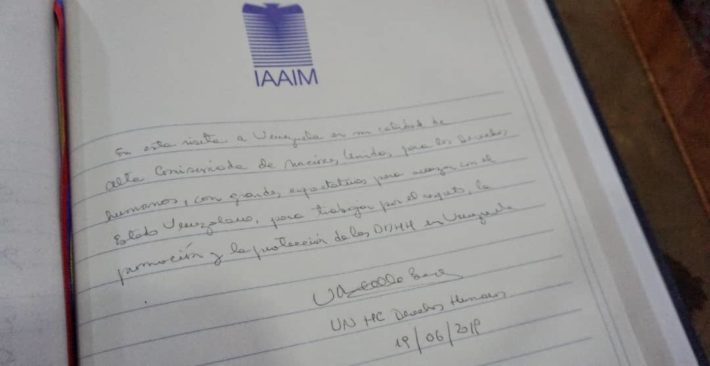 IAAIM
En esta visita a Venezuela en mi calidad de
Alta Comisionada de Naciones Unidas para los Derechos
humanos, con grandes expectativas para avanzar con el
Estado Venezolano, para trabajar por el respeto, la
promoción y la protección de los DDHH en Venezuela
UN HC Derechos Humanos
19/06/2019